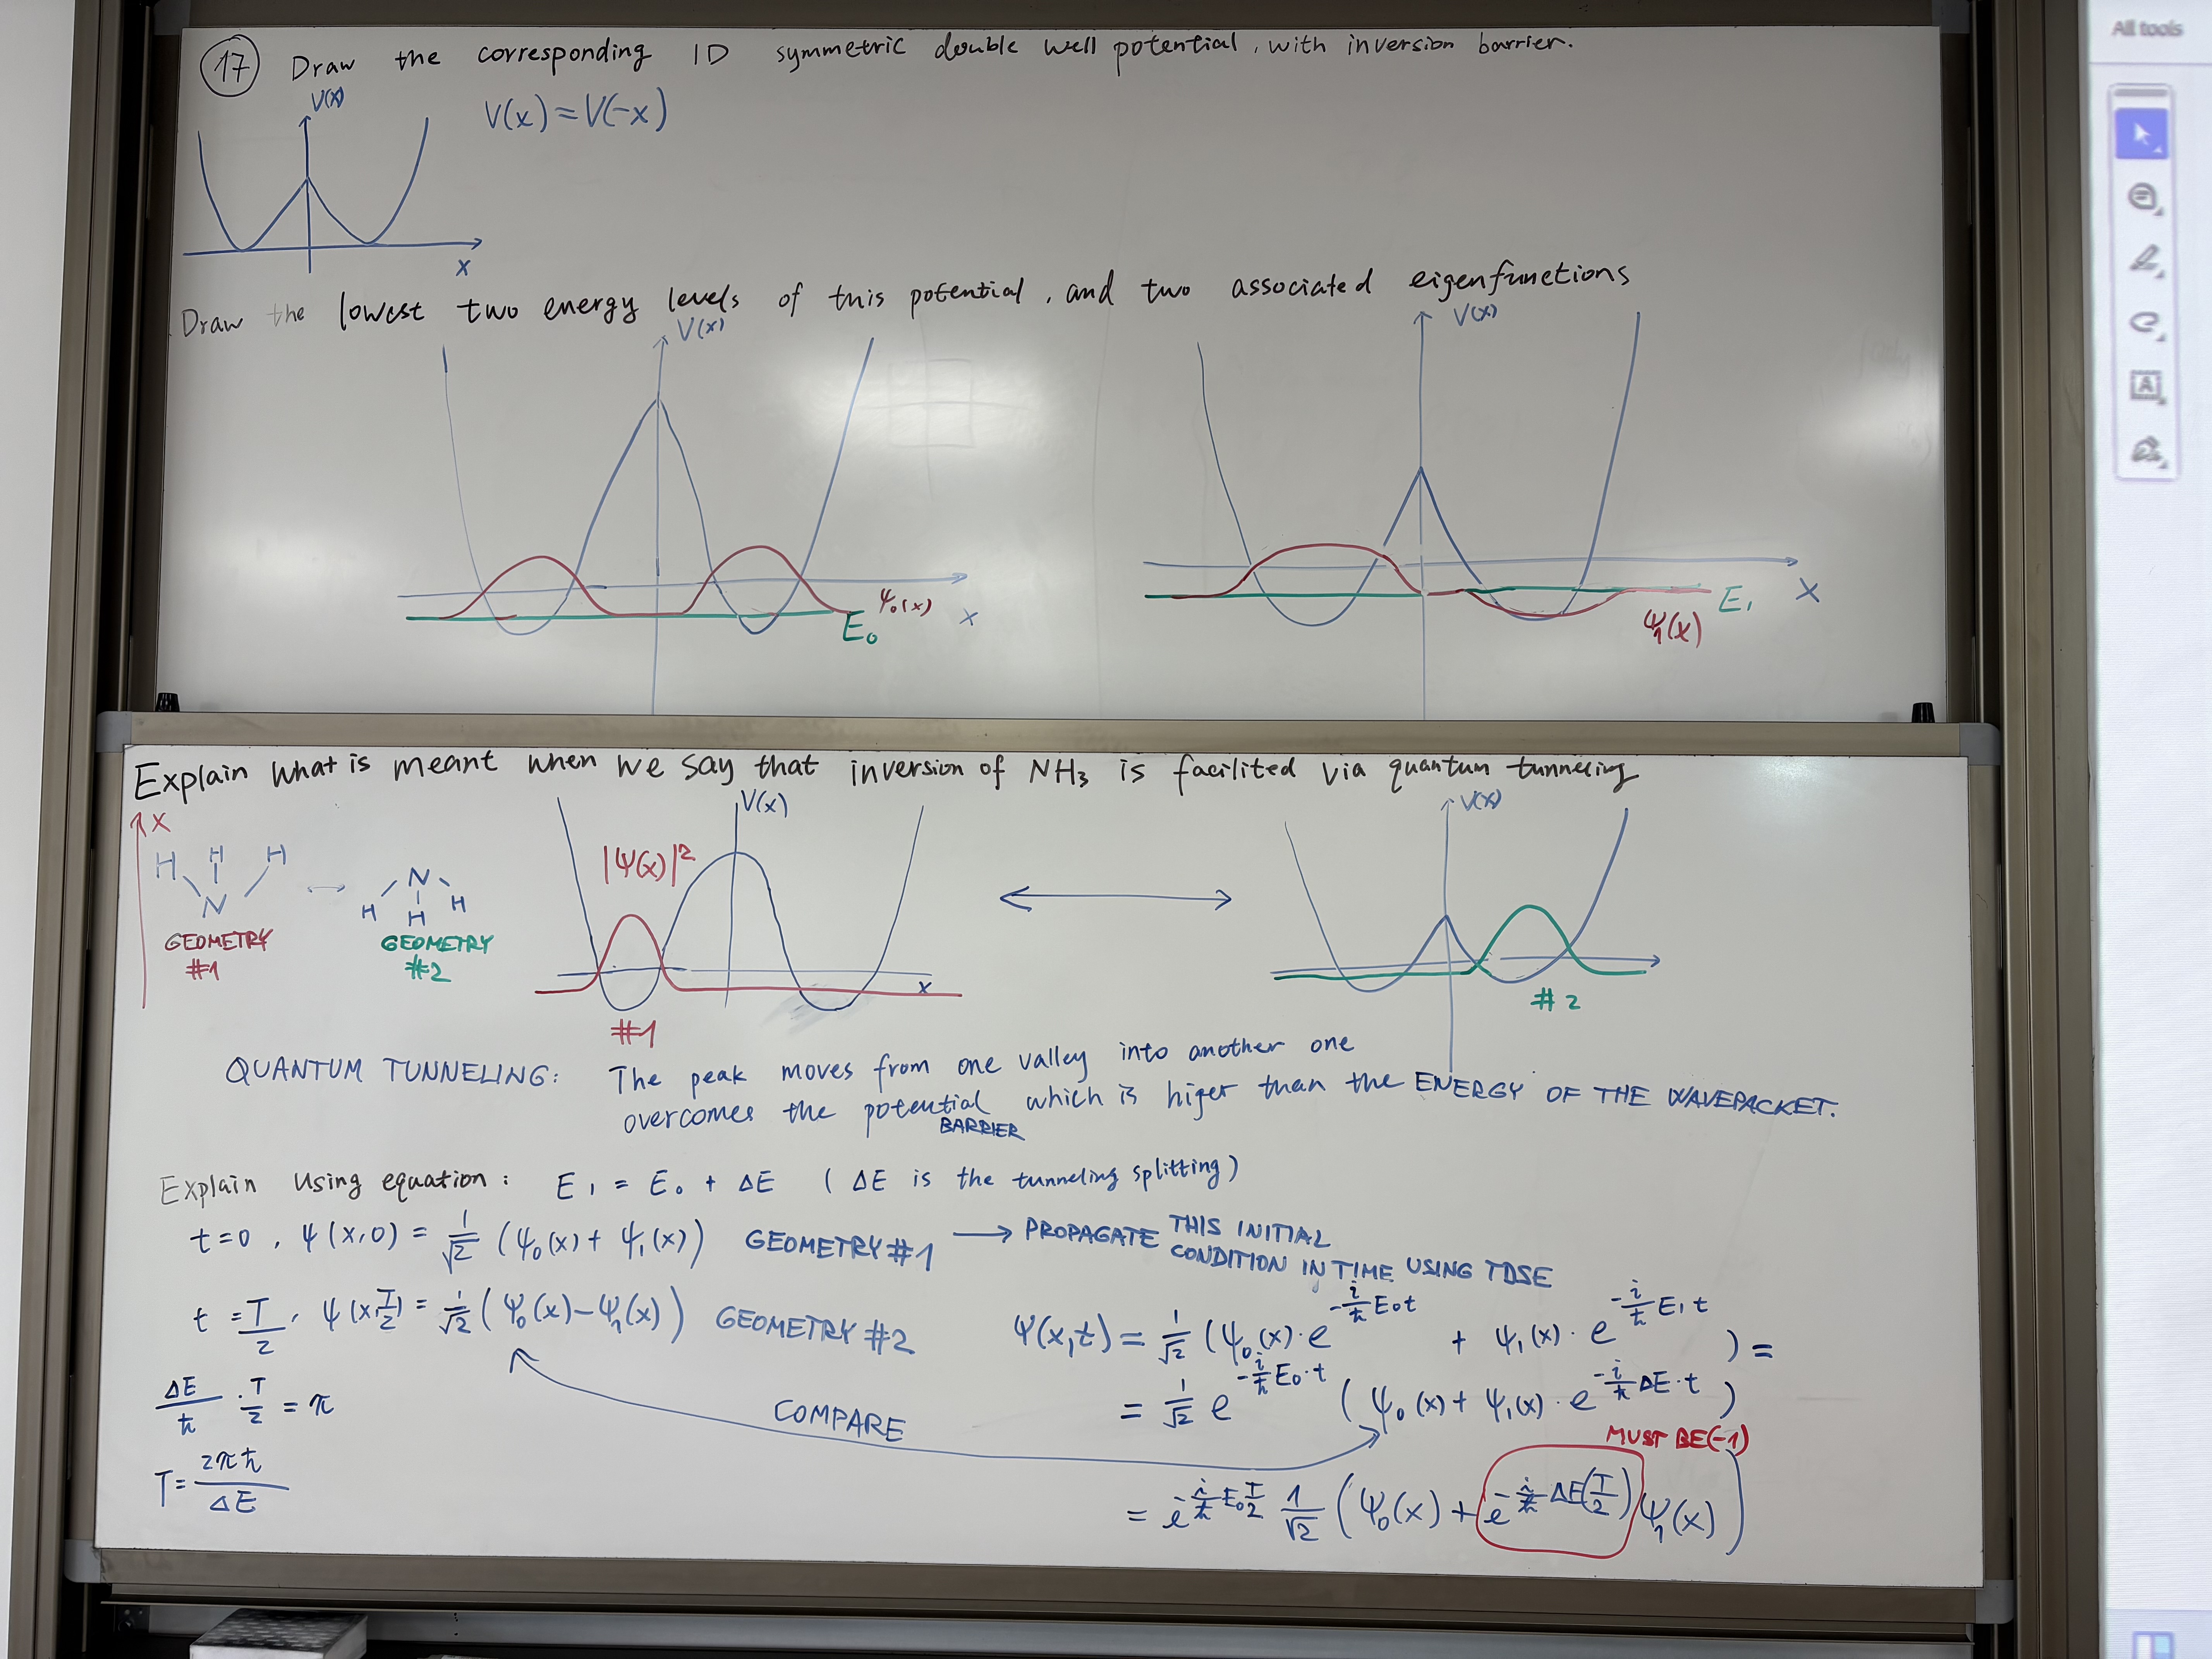 17 Draw the corresponding 1D symmetric double well potential, with inversion barrier.
V(x)
V(x)=V(-x)
x
Draw the lowest two energy levels of this potential, and two associated eigenfunctions
V(x)
ψ₀(x)
E₀
x
V(x)
E₁
x
ψ₁(x)
Explain what is meant when we say that inversion of NH₃ is facilited via quantum tunneling
x
H H H
N
GEOMETRY
#1
N
H H H
GEOMETRY
#2
V(x)
|ψ(x)|²
x
#1
V(x)
#2
QUANTUM TUNNELING: The peak moves from one valley into another one
overcomes the potential which is higer than the ENERGY OF THE WAVEPACKET.
BARRIER
Explain using equation: E₁ = E₀ + ΔE (ΔE is the tunneling splitting)
t=0, ψ(x,0) = 1/√2 (ψ₀(x) + ψ₁(x)) GEOMETRY #1 → PROPAGATE THIS INITIAL
CONDITION IN TIME USING TDSE
t = T/2, ψ(x,T/2) = 1/√2 (ψ₀(x) − ψ₁(x)) GEOMETRY #2
ψ(x,t) = 1/√2 (ψ₀(x)·e^(-i/ħ E₀t) + ψ₁(x)·e^(-i/ħ E₁t)) =
= 1/√2 e^(-i/ħ E₀·t) (ψ₀(x) + ψ₁(x)·e^(-i/ħ ΔE·t))
COMPARE
MUST BE (-1)
= e^(-i/ħ E₀ T/2) 1/√2 (ψ₀(x) + e^(-i/ħ ΔE(T/2)) ψ₁(x))
ΔE/ħ · T/2 = π
T = 2πħ/ΔE
All tools
A